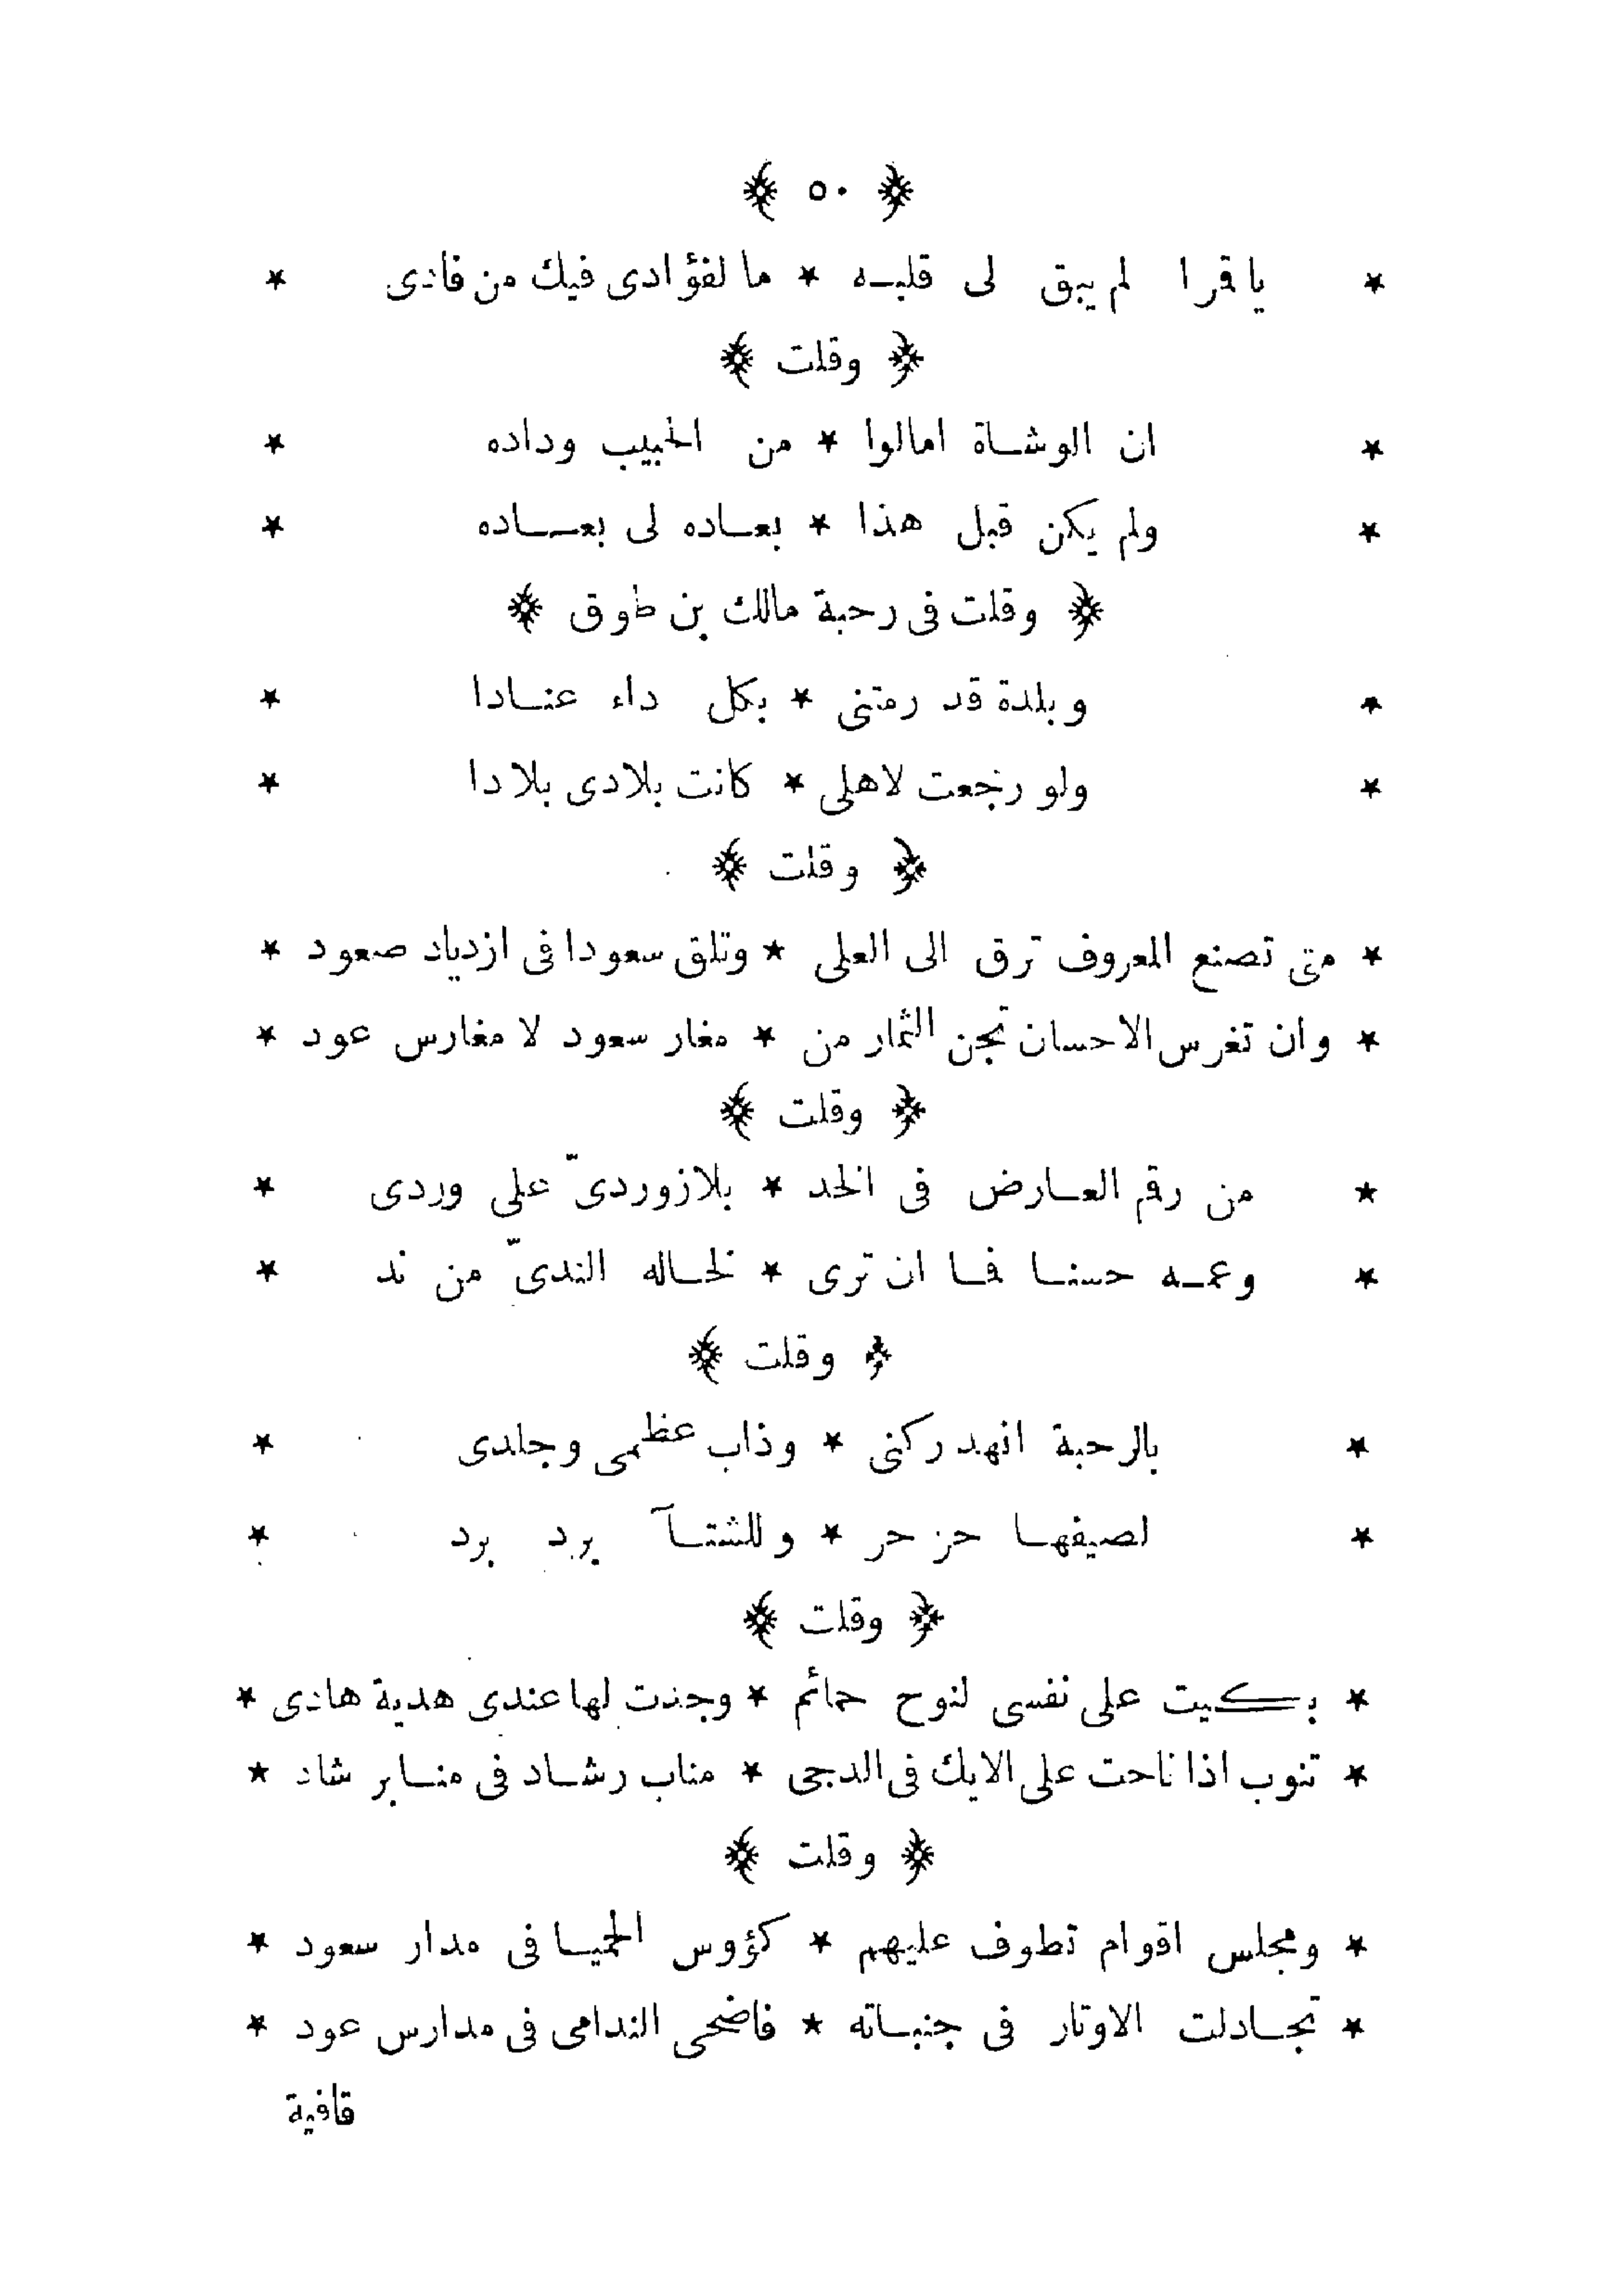 ﴿ ٥٠ ﴾
* ياقمرا لم يبق لى قلبه * ما لفؤادى فيك من فادى *
﴿ وقلت ﴾
* ان الوشاة امالوا * من الحبيب وداده *
* ولم يكن قبل هذا * بعاده لى بعاده *
﴿ وقلت فى رحبة مالك بن طوق ﴾
* وبلدة قد رمتنى * بكل داء عنادا *
* ولو رجعت لاهلى * كانت بلادى بلادا *
﴿ وقلت ﴾
* متى تصنع المعروف ترق الى العلى * وتلق سعودا فى ازدياد صعود *
* وان تغرس الاحسان تجن الثمار من * مغار سعود لا مغارس عود *
﴿ وقلت ﴾
* من رقم العارض فى الخد * بلازوردىّ على وردى *
* وعمه حسنا فما ان ترى * لخاله الندىّ من ند *
﴿ وقلت ﴾
* بالرحبة انهد ركنى * وذاب عظمى وجلدى *
* لصيفها حز حر * وللشتآ برد برد *
﴿ وقلت ﴾
* بكيت على نفسى لنوح حمائم * وجدت لها عندى هدية هادى *
* تنوب اذا ناحت على الايك فى الدجى * مناب رشاد فى منابر شاد *
﴿ وقلت ﴾
* ومجلس اقوام تطوف عليهم * كؤوس الحميا فى مدار سعود *
* تجادلت الاوتار فى جنباته * فاضحى الندامى فى مدارس عود *
قافية